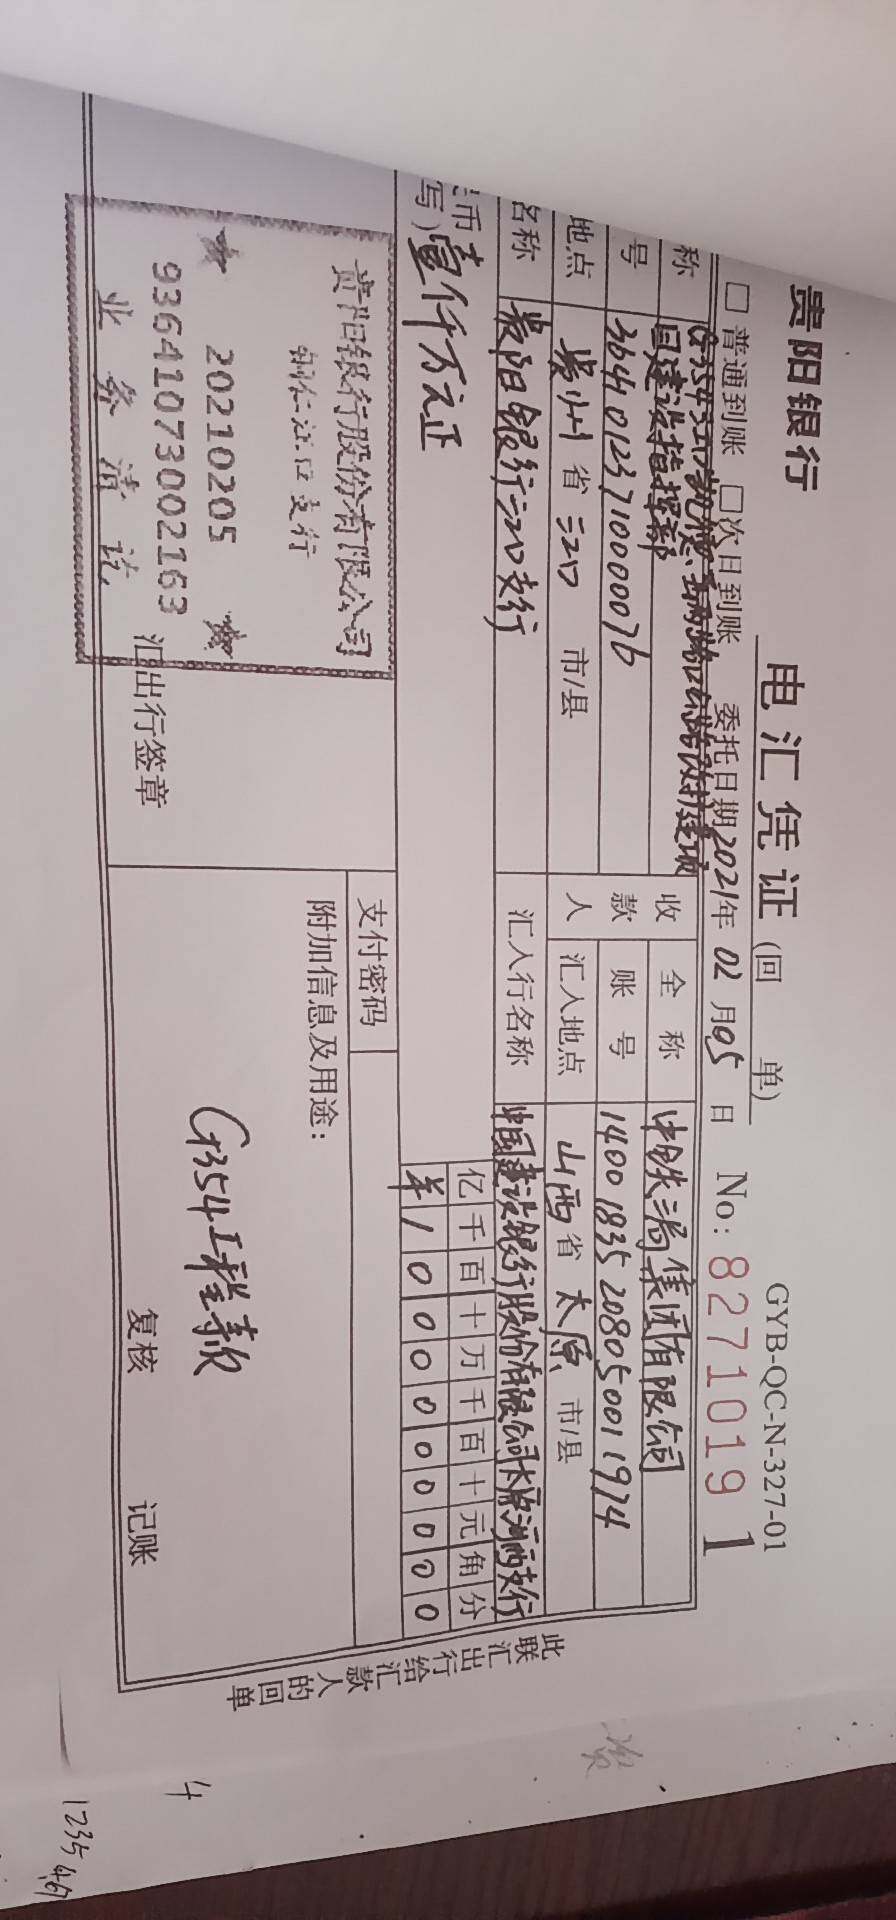 贵阳银行
电汇凭证(回 单)
GYB-QC-N-327-01
□普通到账 □次日到账 委托日期2021年02月05日 No:82710191
称
目建设指挥部
收款人
全称 中铁三局集团有限公司
号 36410123710000076
账号 14001835208050011974
地点 贵州省江口市/县
汇入地点 山西省太原市/县
名称 贵阳银行江口支行
汇入行名称 中国建设银行股份有限公司太原河西支行
币
写)壹仟万元正
亿千百十万千百十元角分
¥1000000000
贵阳银行股份有限公司
铜仁江口支行
20210205
93641073002163
业务清讫
汇出行签章
支付密码
附加信息及用途:
G354工程款
复核 记账
此联汇出行给汇款人的回单
4
1235